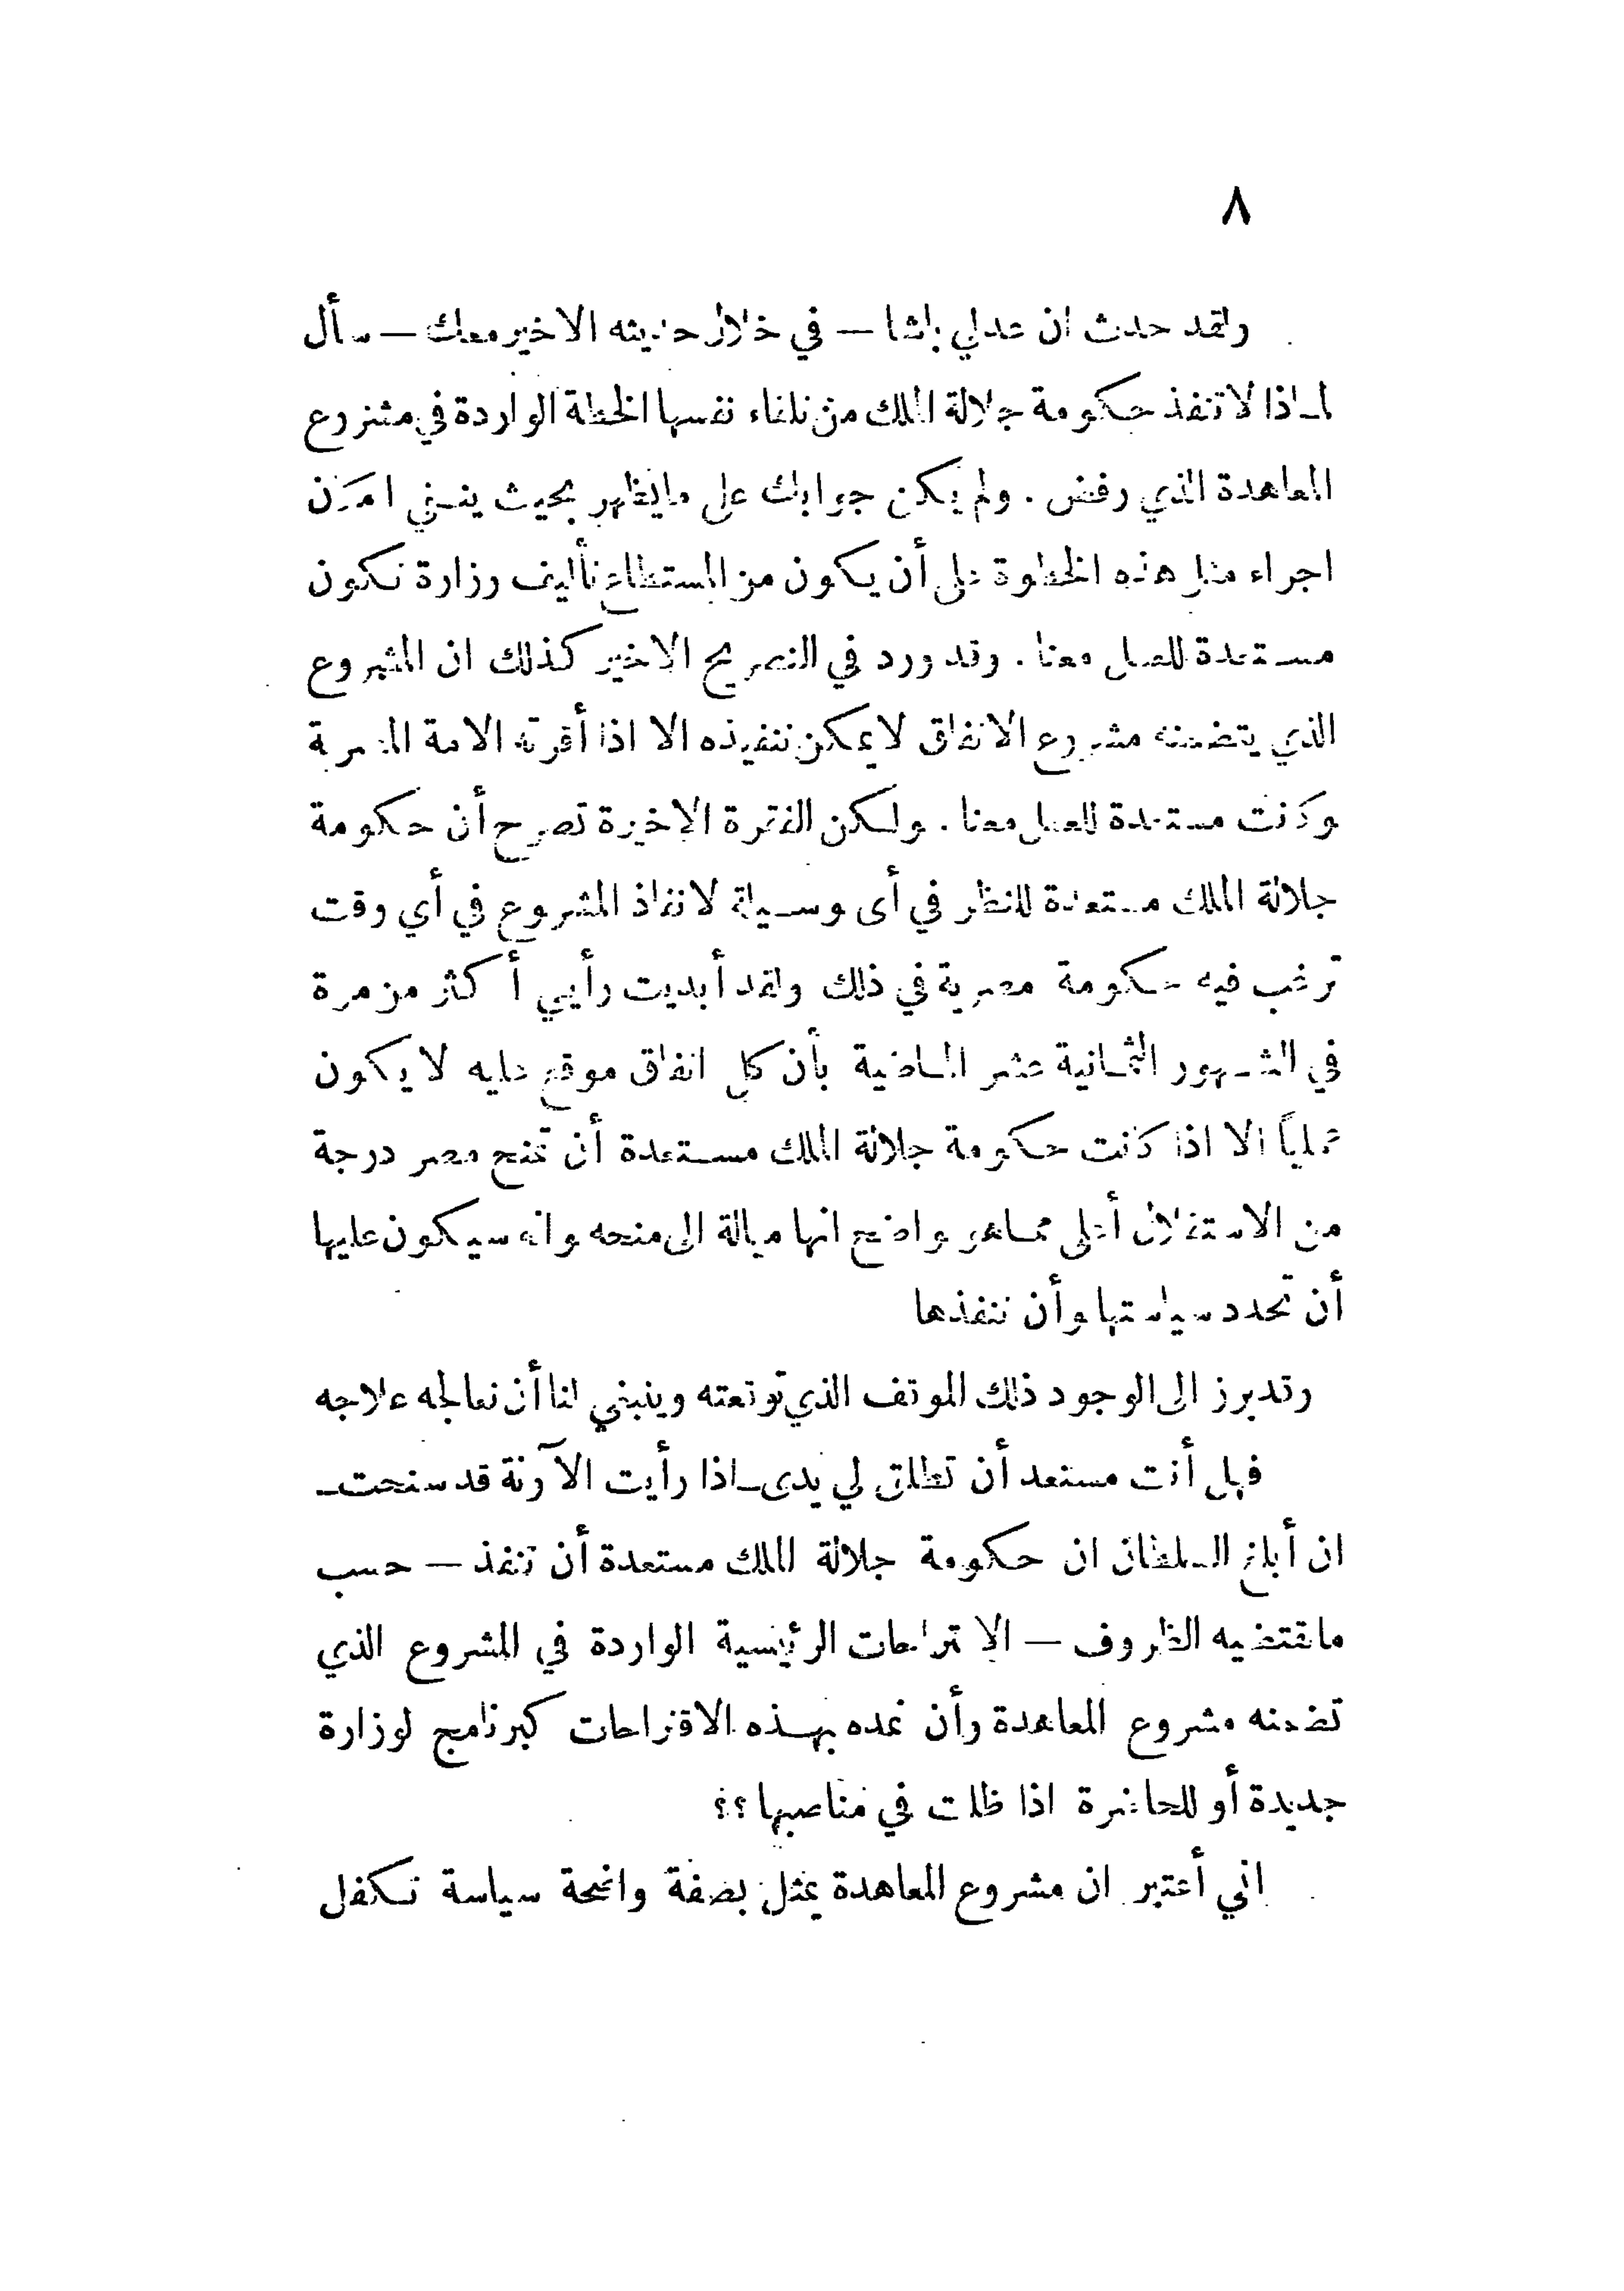 ٨
ولقد حدث ان عدلي باشا — في خلال حديثه الاخير معك — سأل
لماذا لا تنفذ حكومة جلالة الملك من تلقاء نفسها الخطة الواردة في مشروع
المعاهدة الذي رفض . ولم يكن جوابك على ما يظهر بحيث ينفي امكان
اجراء مثل هذه الخطوة على أن يكون من المستطاع تأليف وزارة تكون
مستعدة للعمل معنا . وقد ورد في التصريح الاخير كذلك ان المشروع
الذي يتضمنه مشروع الاتفاق لا يمكن تنفيذه الا اذا أقرته الامة المصرية
وكانت مستعدة للعمل معنا . ولكن الفترة الاخيرة تصرح أن حكومة
جلالة الملك مستعدة للنظر في أى وسيلة لانفاذ المشروع في أي وقت
ترغب فيه حكومة مصرية في ذلك ولقد أبديت رأيي أكثر من مرة
في الشهور الثمانية عشر الماضية بأن كل اتفاق موقع عليه لا يكون
عملياً الا اذا كانت حكومة جلالة الملك مستعدة أن تمنح مصر درجة
من الاستقلال أعلى مما هو واضح انها ميالة الى منحه وانه سيكون عليها
أن تحدد سياستها وأن تنفذها
وقد برز الى الوجود ذلك الموقف الذي توقعته وينبغي لنا أن نعالجه علاجه
فهل أنت مستعد أن تطلق لي يدى ـ اذا رأيت الآونة قد سنحت ـ
ان أبلغ السلطان ان حكومة جلالة الملك مستعدة أن تنفذ — حسب
ما تقتضيه الظروف — الاقتراحات الرئيسية الواردة في المشروع الذي
تضمنه مشروع المعاهدة وأن نمده بهذه الاقتراحات كبرنامج لوزارة
جديدة أو للحاضرة اذا ظلت في مناصبها ؟؟
اني أعتبر ان مشروع المعاهدة يمثل بصفة واضحة سياسة تكفل